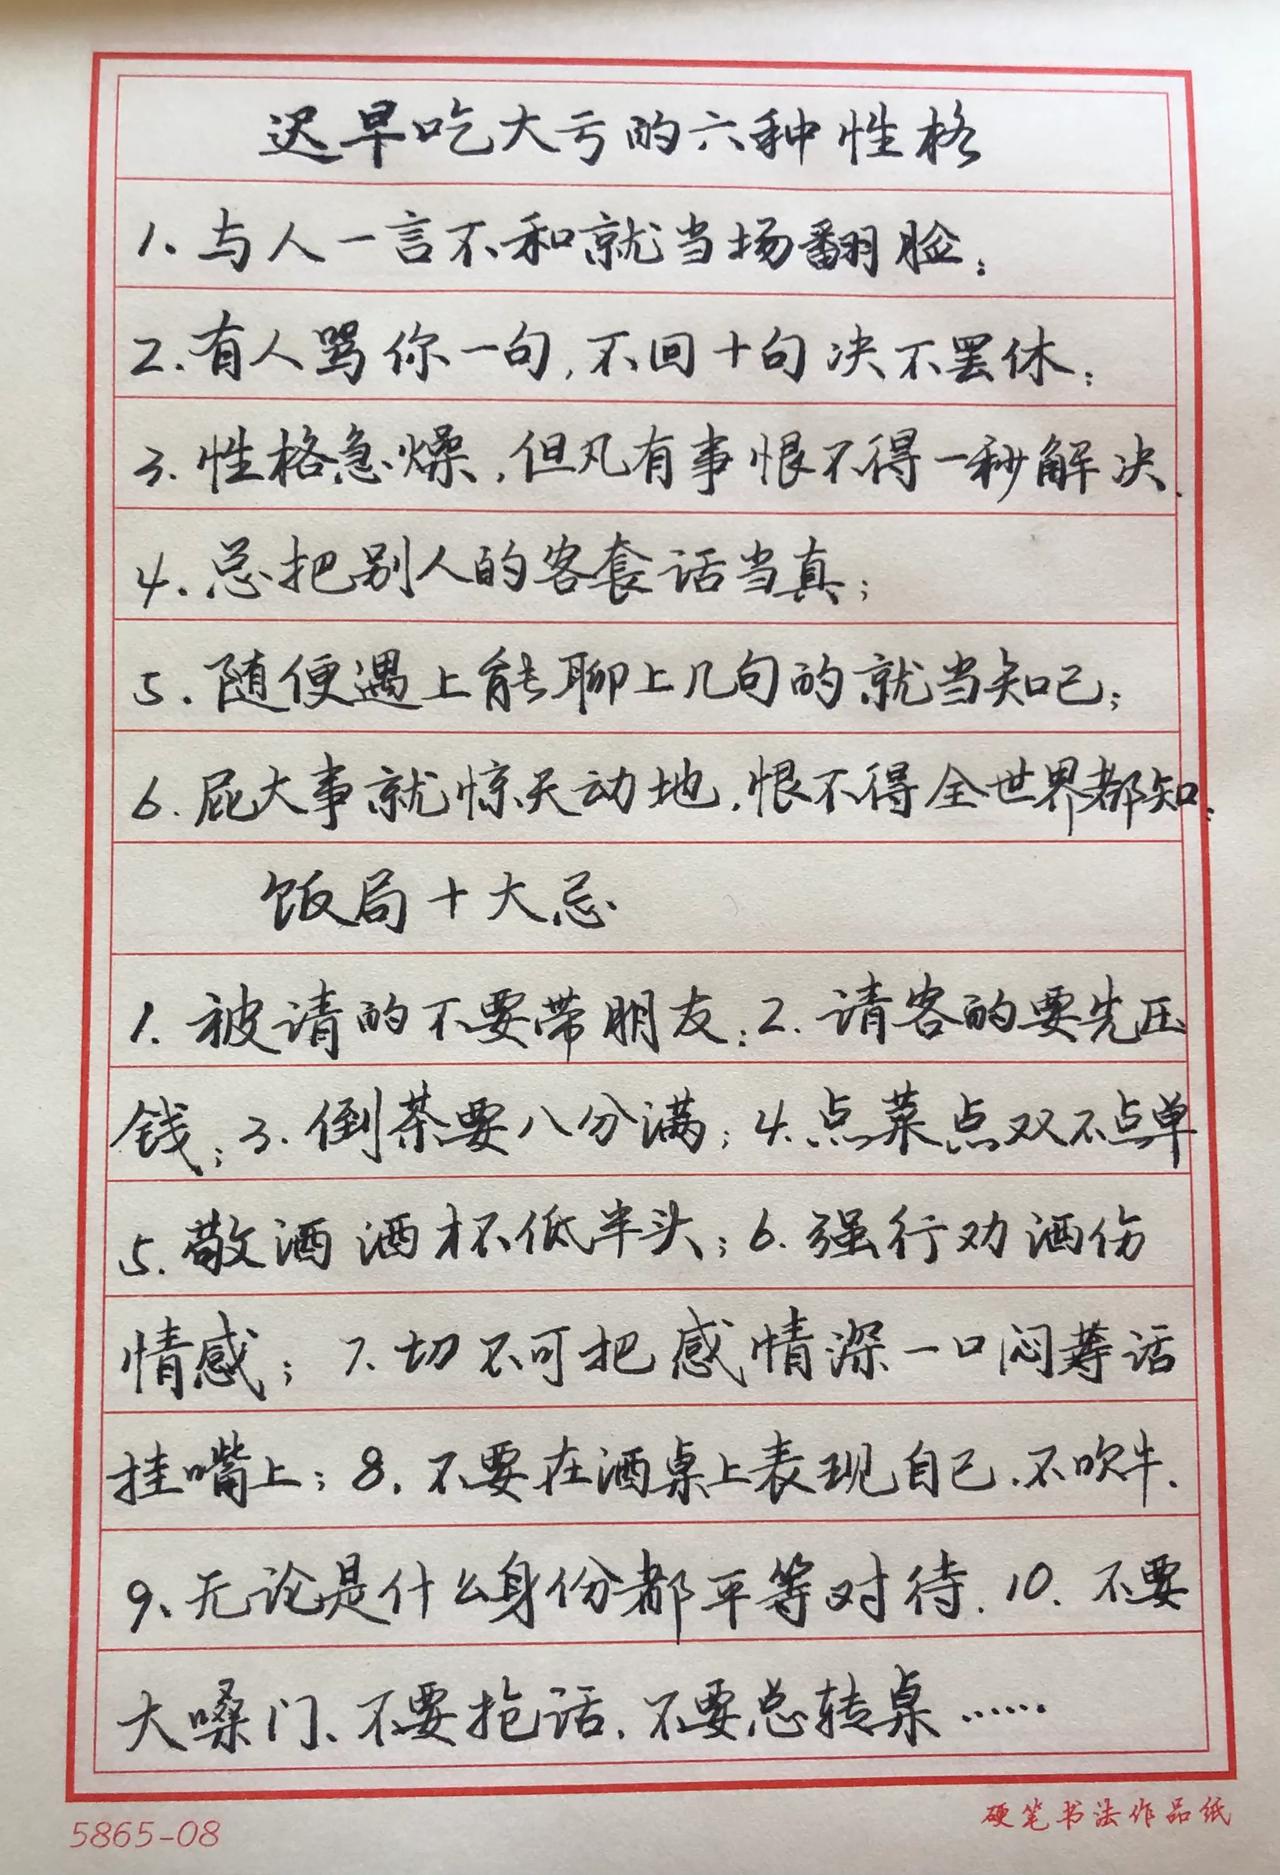 迟早吃大亏的六种性格
1、与人一言不和就当场翻脸；
2.有人骂你一句，不回十句决不罢休；
3.性格急燥，但凡有事恨不得一秒解决、
4.总把别人的客套话当真；
5.随便遇上能聊上几句的就当知己；
6.屁大事就惊天动地，恨不得全世界都知；
饭局十大忌
1.被请的不要带朋友；2.请客的要先压
钱；3.倒茶要八分满；4.点菜点双不点单
5.敬酒酒杯低半头；6.强行劝酒伤
情感；7.切不可把感情深一口闷等话
挂嘴上；8.不要在酒桌上表现自己、不吹牛、
9、无论是什么身份都平等对待、10、不要
大嗓门、不要抢话、不要总转桌……
5865-08
硬笔书法作品纸